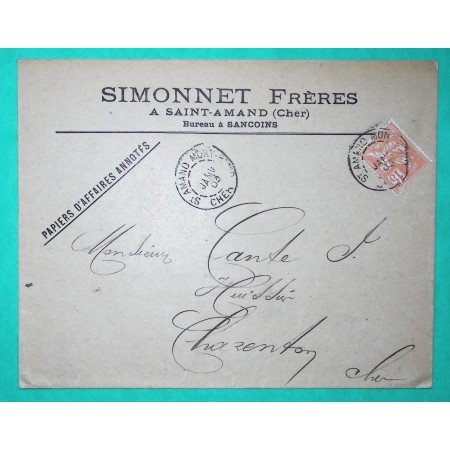 SIMONNET FRÈRES
A SAINT-AMAND (Cher)
Bureau à SANCOINS
PAPIERS D'AFFAIRES ANNOTÉS
ST AMAND MONT
JANV
CHER
ST AMAND MON
15
Monsieur Cante J.
Huissier
Charenton
Cher